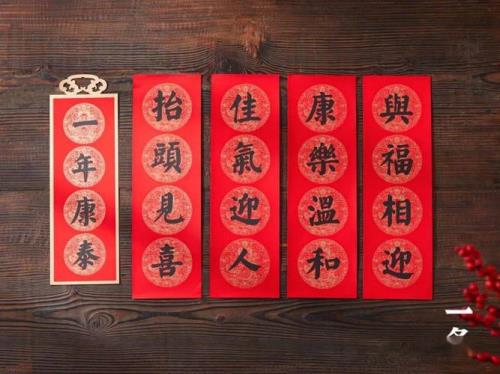 一年康泰
抬頭見喜
佳氣迎人
康樂溫和
與福相迎